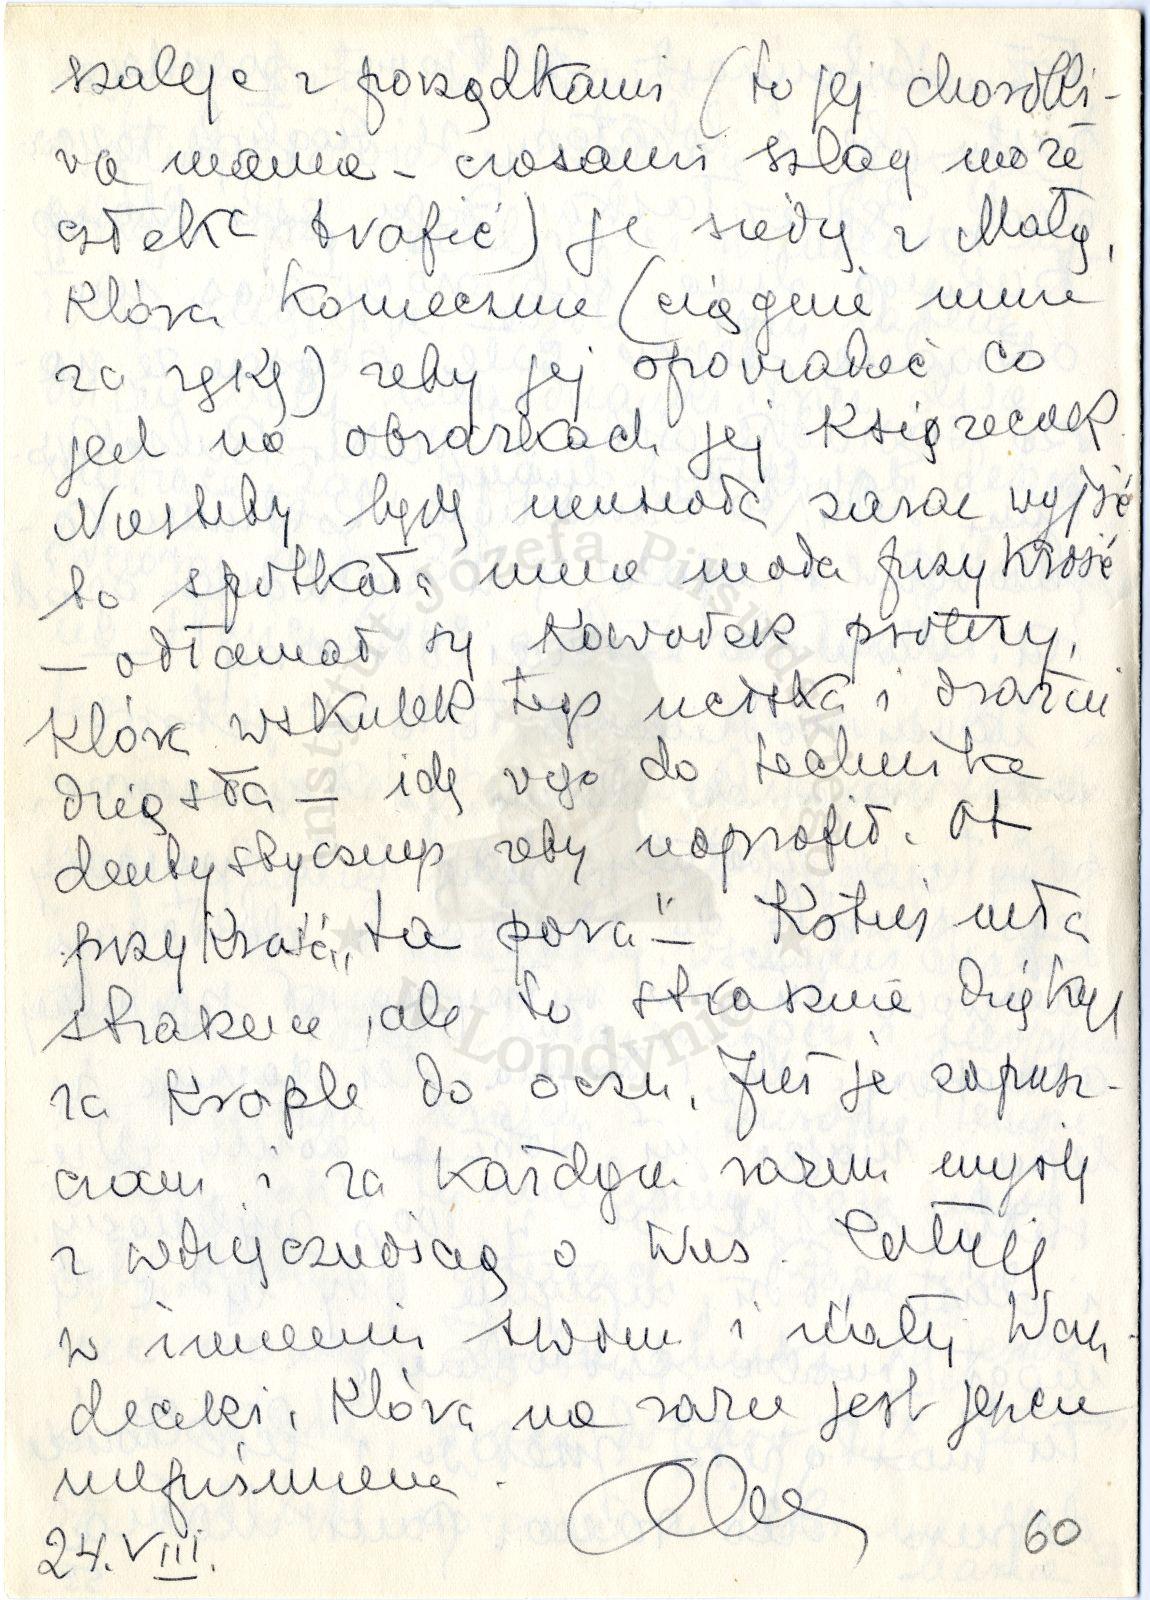 szaleje z porządkami (to jej chorobli-
wa mania – czasami szlag może
człeka trafić) ja siedzę z Małą,
która koniecznie (ciągnie mnie
za rękę) żeby jej opowiadać co
jest na obrazkach jej książeczek.
Niestety będę musiała zaraz wyjść
bo spotkała mnie mała przykrość
– odłamał się kawałek protezy,
która wskutek tego uciska i drażni
dziąsła – idę więc do technika
dentystycznego żeby naprawił. Ot
przykrość „ta pora" – Kotuś miła
strasznie, ale to strasznie dziękuję
za krople do oczu. Już je zapusz-
czam i za każdym razem myślę
z wdzięcznością o Was. Całuję
w imieniu swoim i małej Wan-
deczki, która na razie jest jeszcze
niepiśmienna.
24.VIII.
60
Instytut Józefa Piłsudskiego
w Londynie